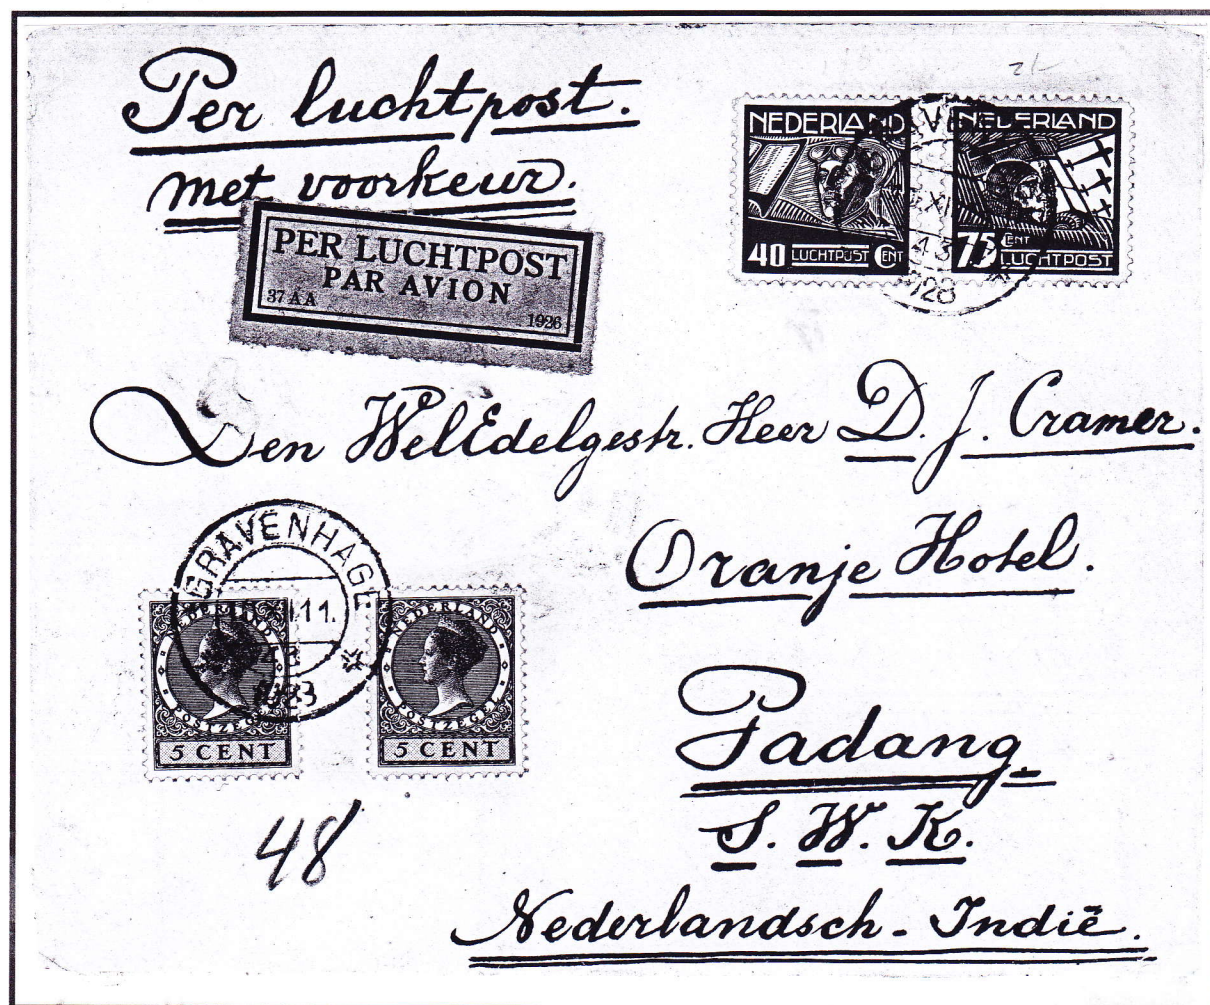 Per luchtpost.
met voorkeur.
PER LUCHTPOST
PAR AVION
37 AA 1926
NEDERLAND
40 LUCHTPOST CENT
NEDERLAND
75 CENT
LUCHTPOST
1928
Den WelEdelgestr. Heer D. J. Cramer.
Oranje Hotel.
Padang
S. W. K.
Nederlandsch-Indië.
GRAVENHAGE
11.
NEDERLAND
POSTZEGEL
5 CENT
NEDERLAND
POSTZEGEL
5 CENT
48